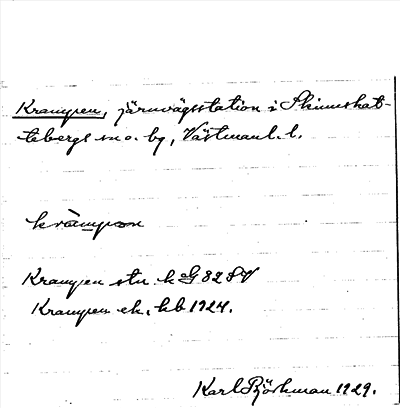 Krampen, järnvägsstation i Skinnskat-
tebergs sn o. by, Västmanl. l.
krampən
Krampen stn. k G 82 SV
Krampen ek. kb 1924.
Karl Björkman 1929.